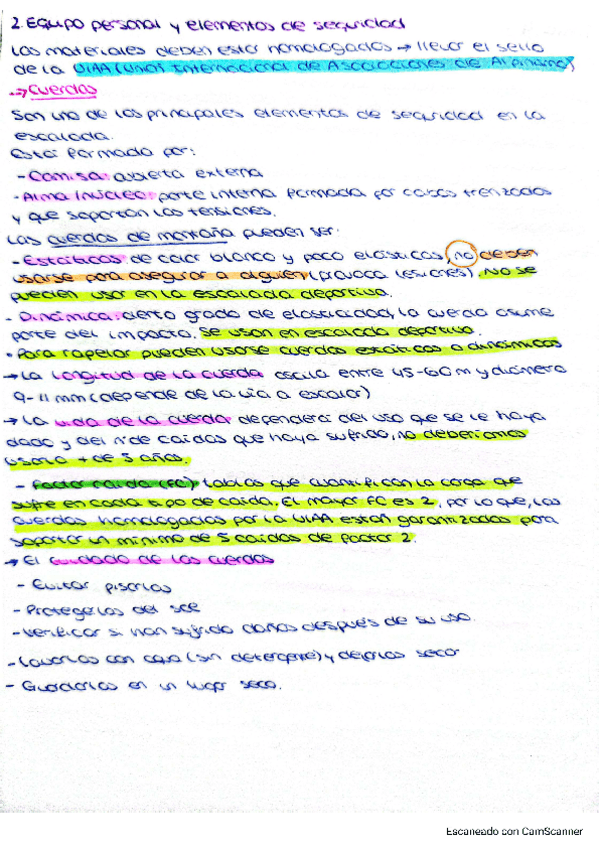 2. Equipo personal y elementos de seguridad
Los materiales deben estar homologados → llevar el sello
de la UIAA (Unión Internacional de Asociaciones de Alpinismo)
→ Cuerdas
Son uno de los principales elementos de seguridad en la
escalada.
Está formada por:
- Camisa: cubierta externa
- Alma/núcleo: parte interna formada por cabos trenzados
y que soportan las tensiones.
Las cuerdas de montaña pueden ser:
- Estáticas: de color blanco y poco elásticas, no deben
usarse para asegurar a alguien (provoca lesiones). No se
pueden usar en la escalada deportiva.
- Dinámica: cierto grado de elasticidad, la cuerda asume
parte del impacto. Se usan en escalada deportiva.
• Para rapelar pueden usarse cuerdas estáticas o dinámicas
→ La longitud de la cuerda oscila entre 45-60 m y diámetro
9-11 mm (depende de la vía a escalar)
→ La vida de la cuerda dependerá del uso que se le haya
dado y del nº de caídas que haya sufrido, no deberíamos
usarla + de 5 años.
- Factor caída (FC): tablas que cuantifican la carga que
sufre en cada tipo de caída. El mayor FC es 2, por lo que, las
cuerdas homologadas por la UIAA están garantizadas para
soportar un mínimo de 5 caídas de factor 2.
→ El cuidado de las cuerdas
- Evitar pisarlas
- Protegerlas del sol
- Verificar si han sufrido daños después de su uso.
- Lavarlas con agua (sin detergente) y dejarlas secar
- Guardarlas en un lugar seco.
Escaneado con CamScanner